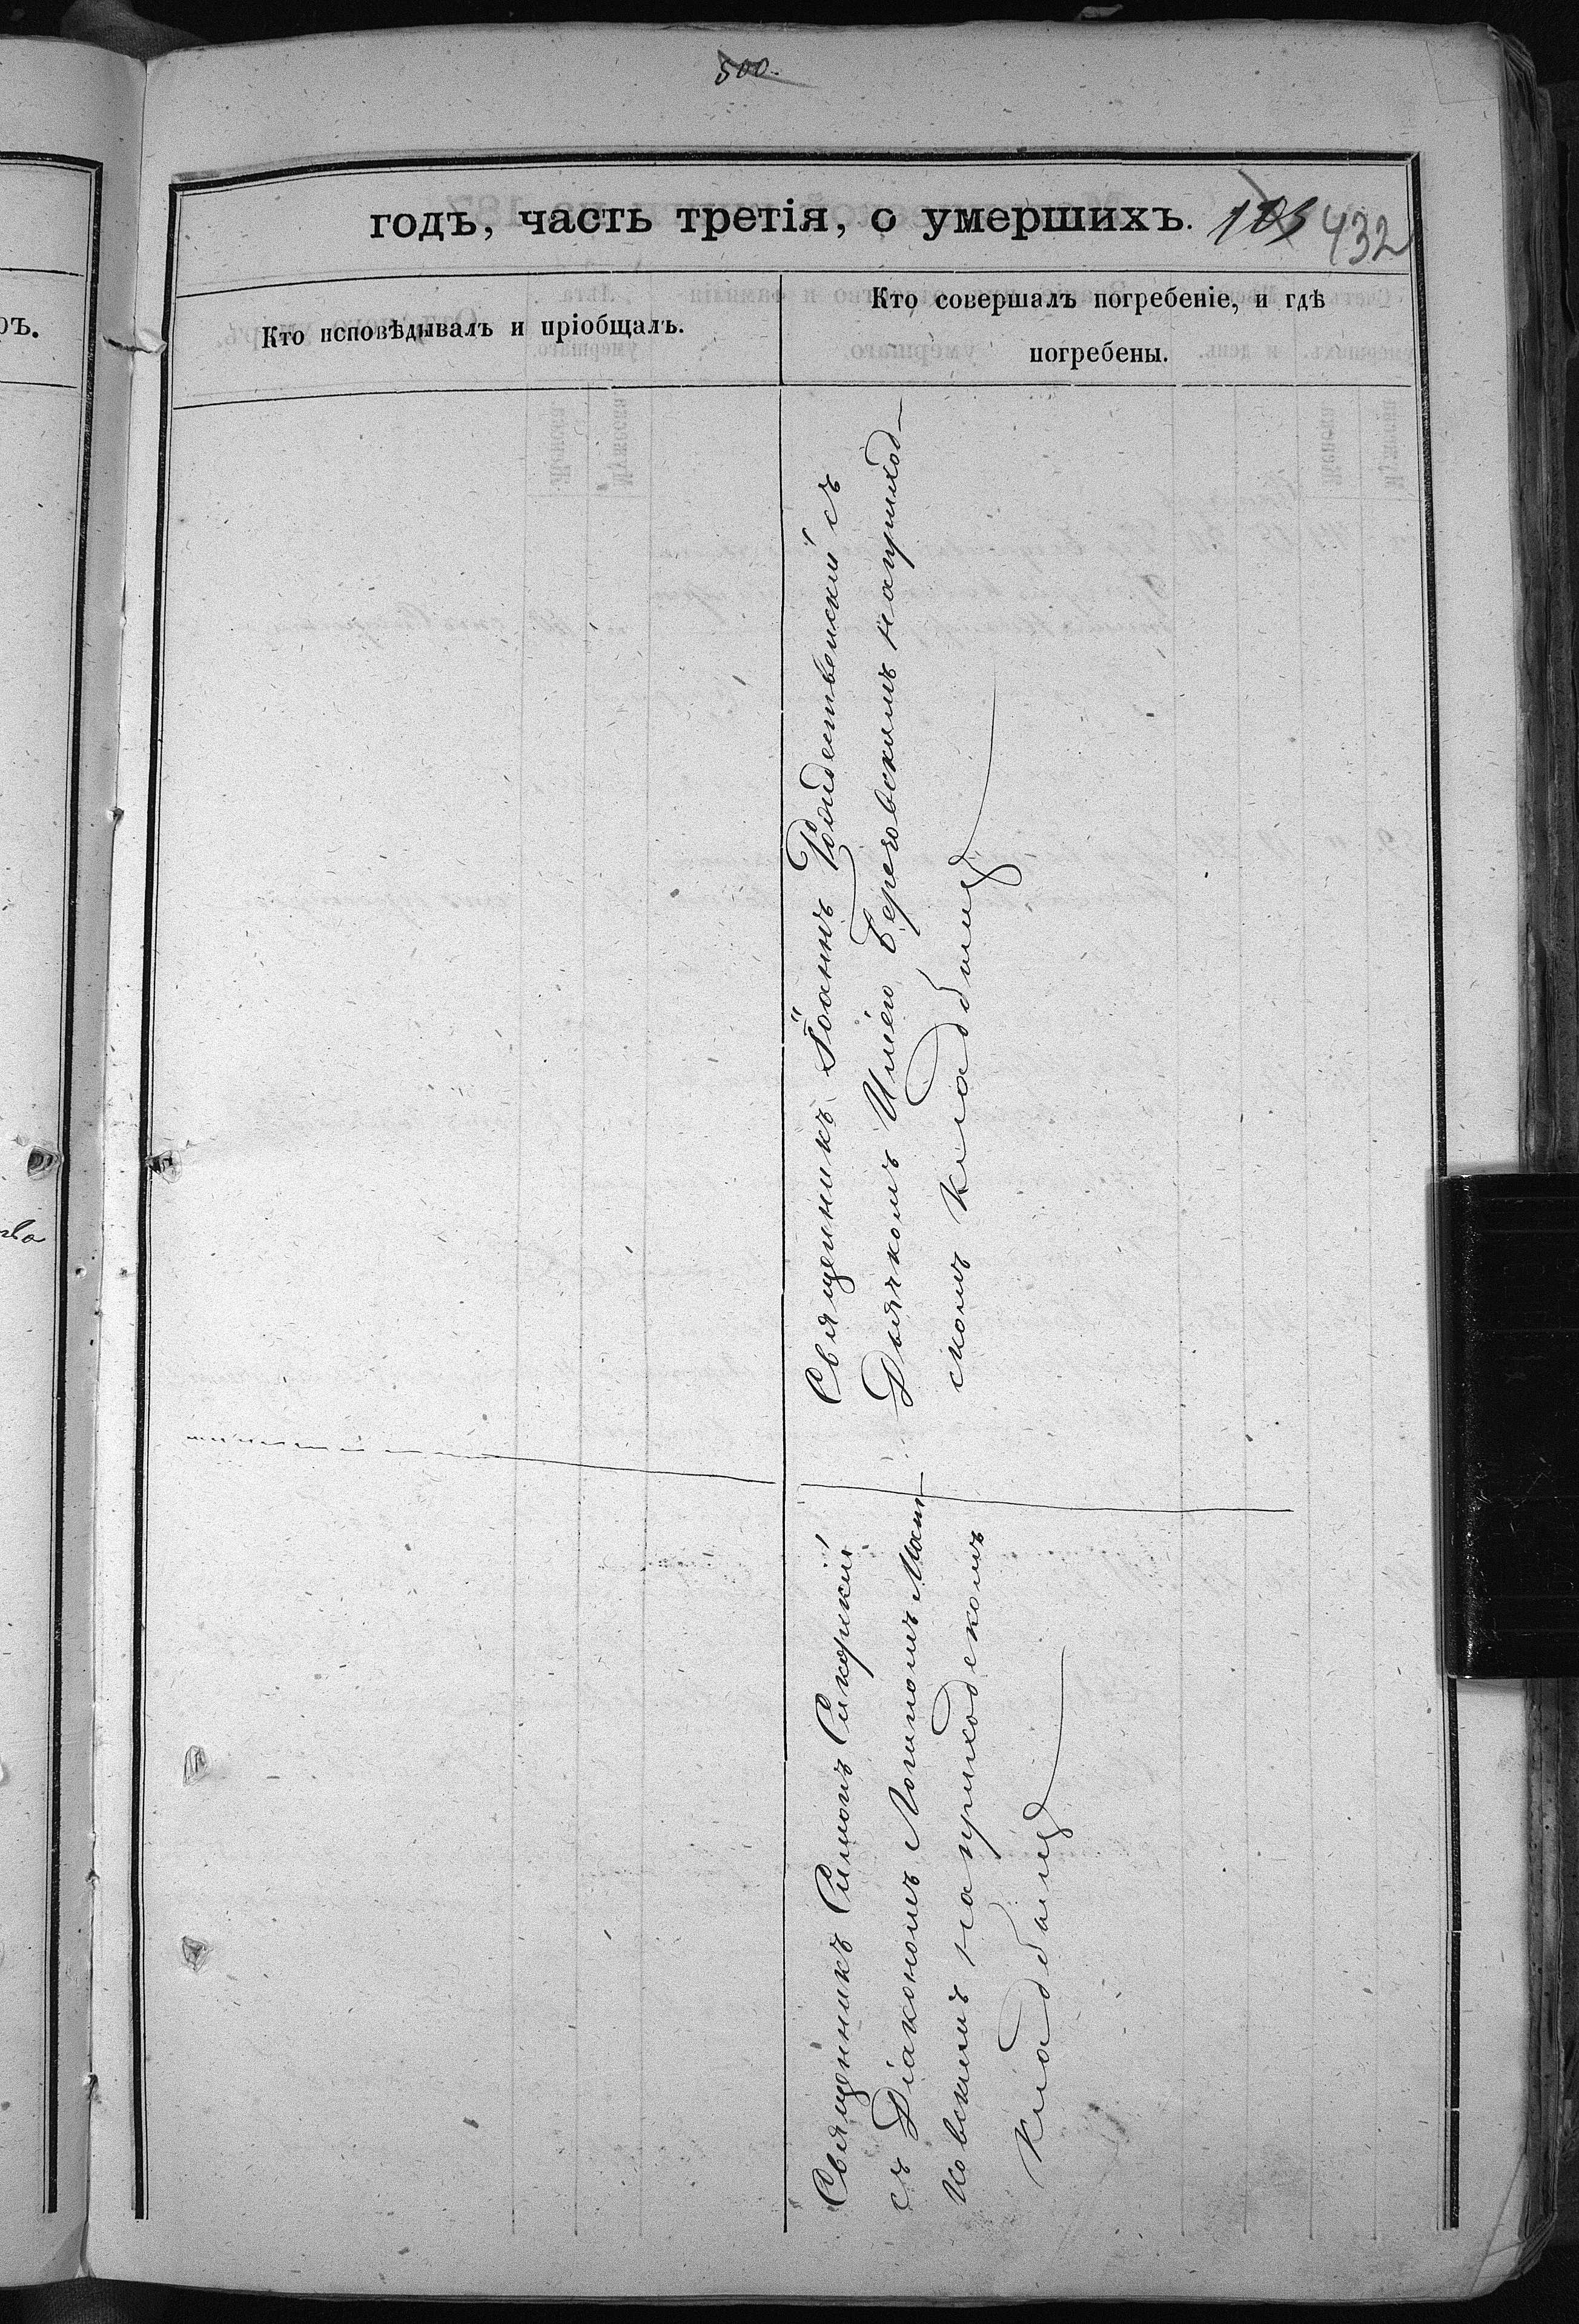 500.
годъ, часть третія, о умершихъ.
432
ръ.
Кто исповѣдывалъ и пріобщалъ.
Кто совершалъ погребеніе, и гдѣ
погребены.
Священникъ Іоаннъ Рождественскій съ
Дьячкомъ Иліею Береговскимъ на приход-
скомъ кладбищѣ
Священникъ Симонъ Сикорскій
съ Діакономъ Логиномъ
новскимъ на приходскомъ
кладбищѣ